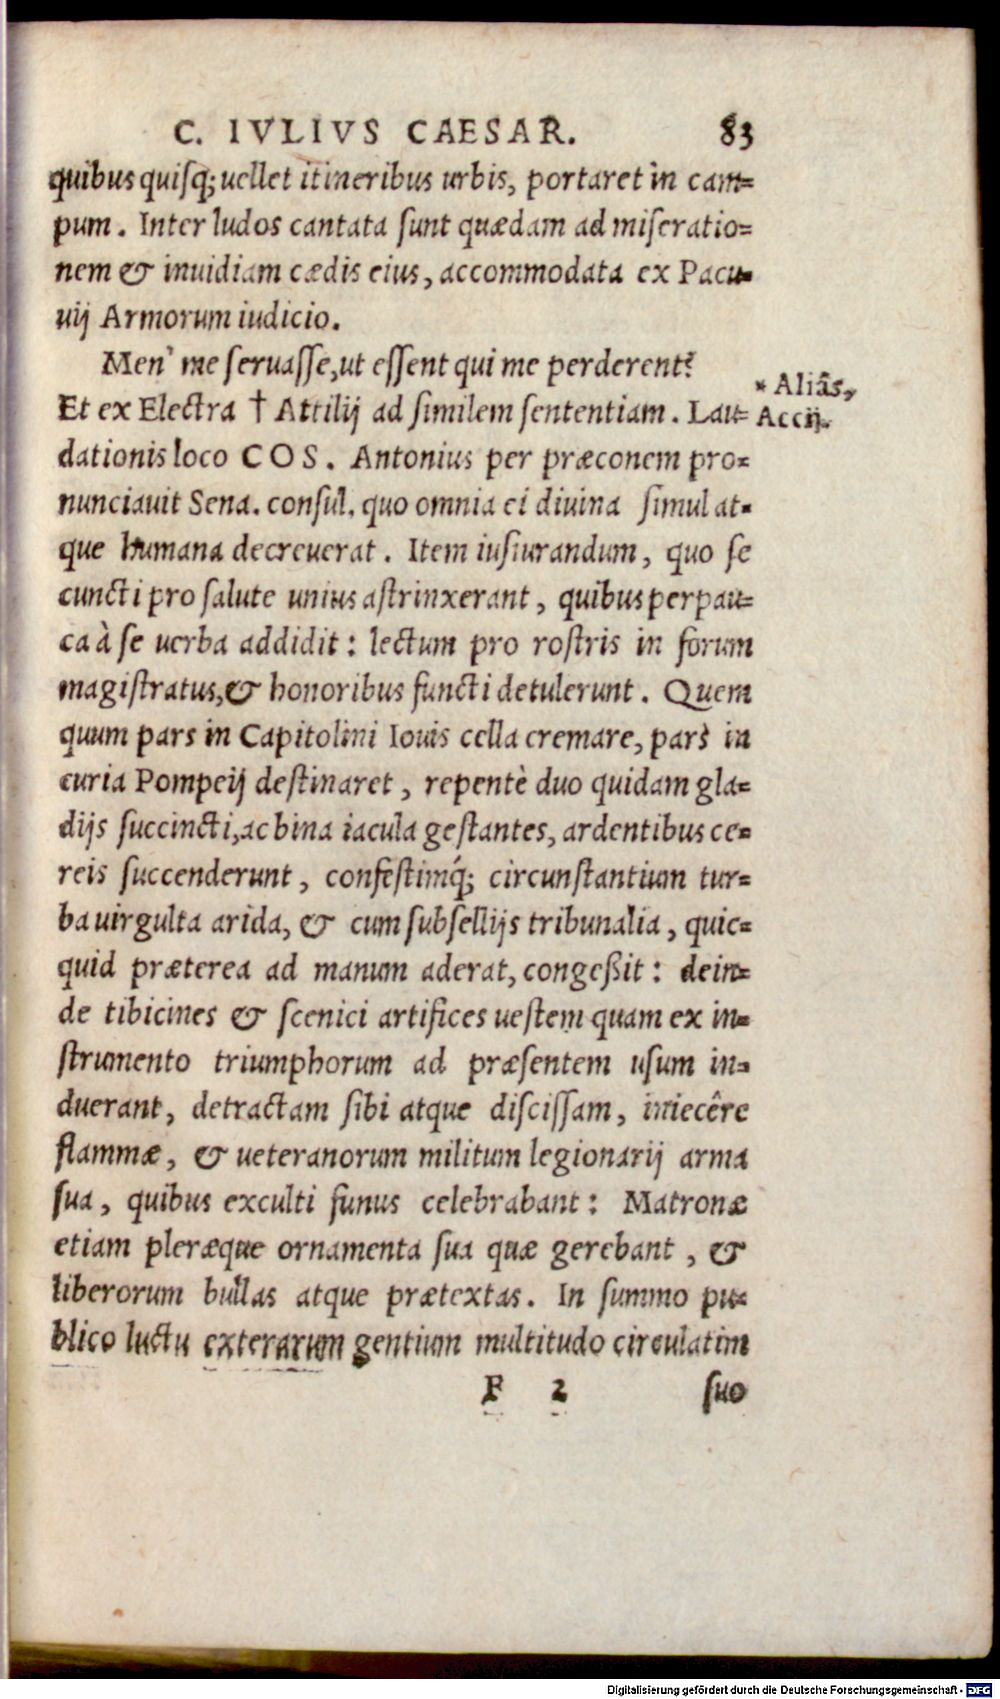 C. IVLIVS CAESAR. 83
quibus quisq; uellet itineribus urbis, portaret in cam=
pum. Inter ludos cantata sunt quædam ad miseratio=
nem & inuidiam cædis eius, accommodata ex Pacu=
uij Armorum iudicio.
Men' me seruasse, ut essent qui me perderent?
* Aliâs,
Et ex Electra † Attilij ad similem sententiam. Lau=
Accij.
dationis loco COS. Antonius per præconem pro=
nunciauit Sena. consul. quo omnia ei diuina simul at=
que humana decreuerat. Item iusiurandum, quo se
cuncti pro salute unius astrinxerant, quibus perpau=
ca à se uerba addidit: lectum pro rostris in forum
magistratus, & honoribus functi detulerunt. Quem
quum pars in Capitolini Iouis cella cremare, pars in
curia Pompeij destinaret, repentè duo quidam gla=
dijs succincti, ac bina iacula gestantes, ardentibus ce=
reis succenderunt, confestimq́; circunstantium tur=
ba uirgulta arida, & cum subsellijs tribunalia, quic=
quid præterea ad manum aderat, congeßit: dein=
de tibicines & scenici artifices uestem quam ex in=
strumento triumphorum ad præsentem usum in=
duerant, detractam sibi atque discissam, iniecêre
flammæ, & ueteranorum militum legionarij arma
sua, quibus exculti funus celebrabant: Matronæ
etiam pleræque ornamenta sua quæ gerebant, &
liberorum bullas atque prætextas. In summo pu=
blico luctu exterarum gentium multitudo circulatim
F 2 suo
Digitalisierung gefördert durch die Deutsche Forschungsgemeinschaft - DFG